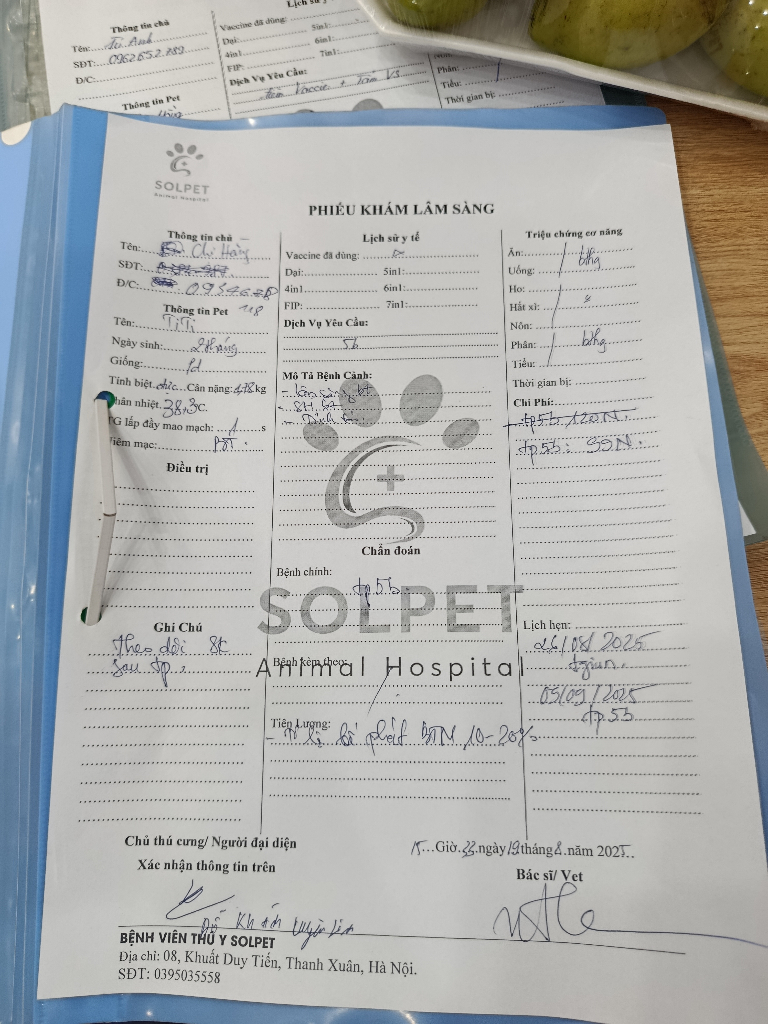 Lịch sử y
Thông tin chủ
Tên: Tú Anh
SĐT: 0962652789
Đ/C:
Thông tin Pet
Vaccine đã dùng:
Dại: 5in1:
4in1 6in1:
FIP: 7in1:
Dịch Vụ Yêu Cầu:
Phân:
Tiểu:
Thời gian bị:
SOLPET
Animal Hospital
PHIẾU KHÁM LÂM SÀNG
Thông tin chủ
Tên: Chị Hằng
SĐT:
Đ/C: 0934628
118
Thông tin Pet
Tên: TiTi
Ngày sinh: 2 tháng
Giống: Pd
Tính biệt: đực Cân nặng: kg
Thân nhiệt: 38,3 C.
TG lấp đầy mao mạch: 1 s
Niêm mạc: BT.
Điều trị
Ghi Chú
Theo dõi SK
sau tp.
Lịch sử y tế
Vaccine đã dùng:
Dại: 5in1:
4in1 6in1:
FIP: 7in1:
Dịch Vụ Yêu Cầu:
5b
Mô Tả Bệnh Cảnh:
- lâm sàng bt
Chẩn đoán
Bệnh chính:
tp 5b
SOLPET
Animal Hospital
Bệnh kèm theo:
Tiên Lượng:
- Tỉ lệ kế phát BTN 10-20%
Triệu chứng cơ năng
Ăn: bthg
Uống:
Ho:
Hắt xì:
Nôn:
Phân: bthg
Tiểu:
Thời gian bị:
Chi Phí:
tp5b 120N.
tp5b: 99N.
Lịch hẹn:
26/08/2025
tgiun.
05/09/2025
tp 5b
Chủ thú cưng/ Người đại diện
Xác nhận thông tin trên
15 Giờ 33 ngày 19 tháng 8 năm 2025
Bác sĩ/ Vet
BỆNH VIÊN THÚ Y SOLPET
Địa chỉ: 08, Khuất Duy Tiến, Thanh Xuân, Hà Nội.
SĐT: 0395035558